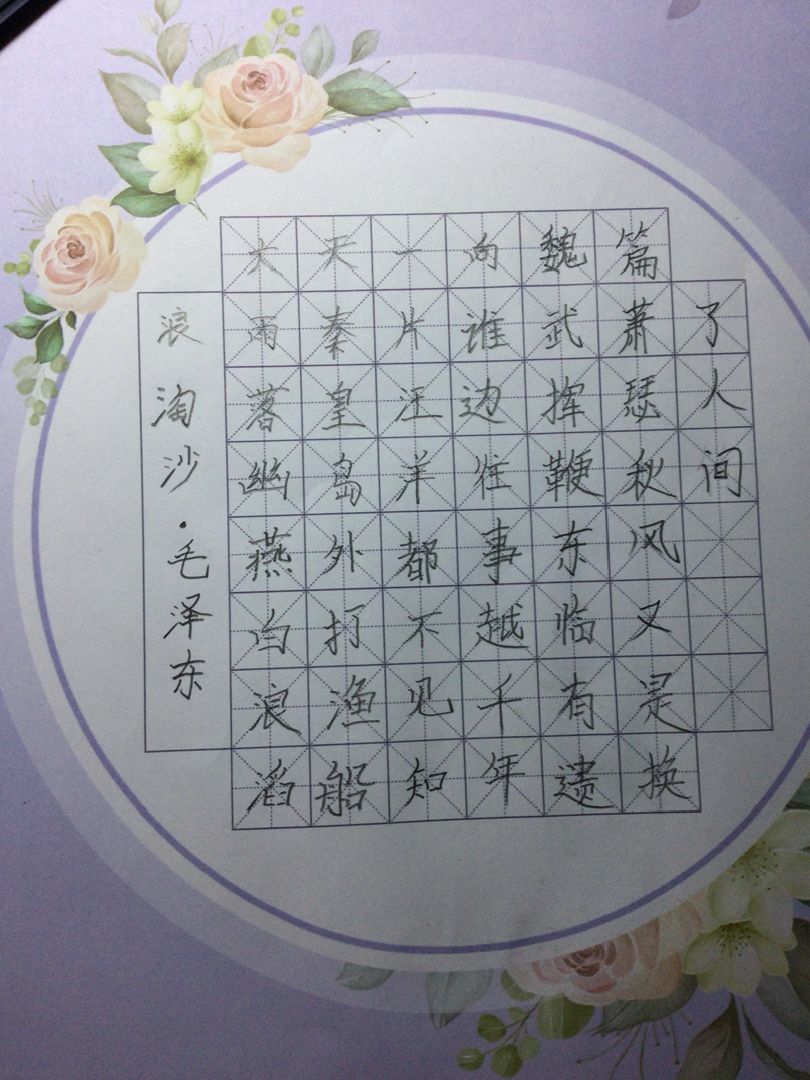 浪淘沙·毛泽东
大雨落幽燕白浪滔
天秦皇岛外打渔船
一片汪洋都不见知
向谁边往事越千年
魏武挥鞭东临有遗
篇萧瑟秋风又是换
了人间